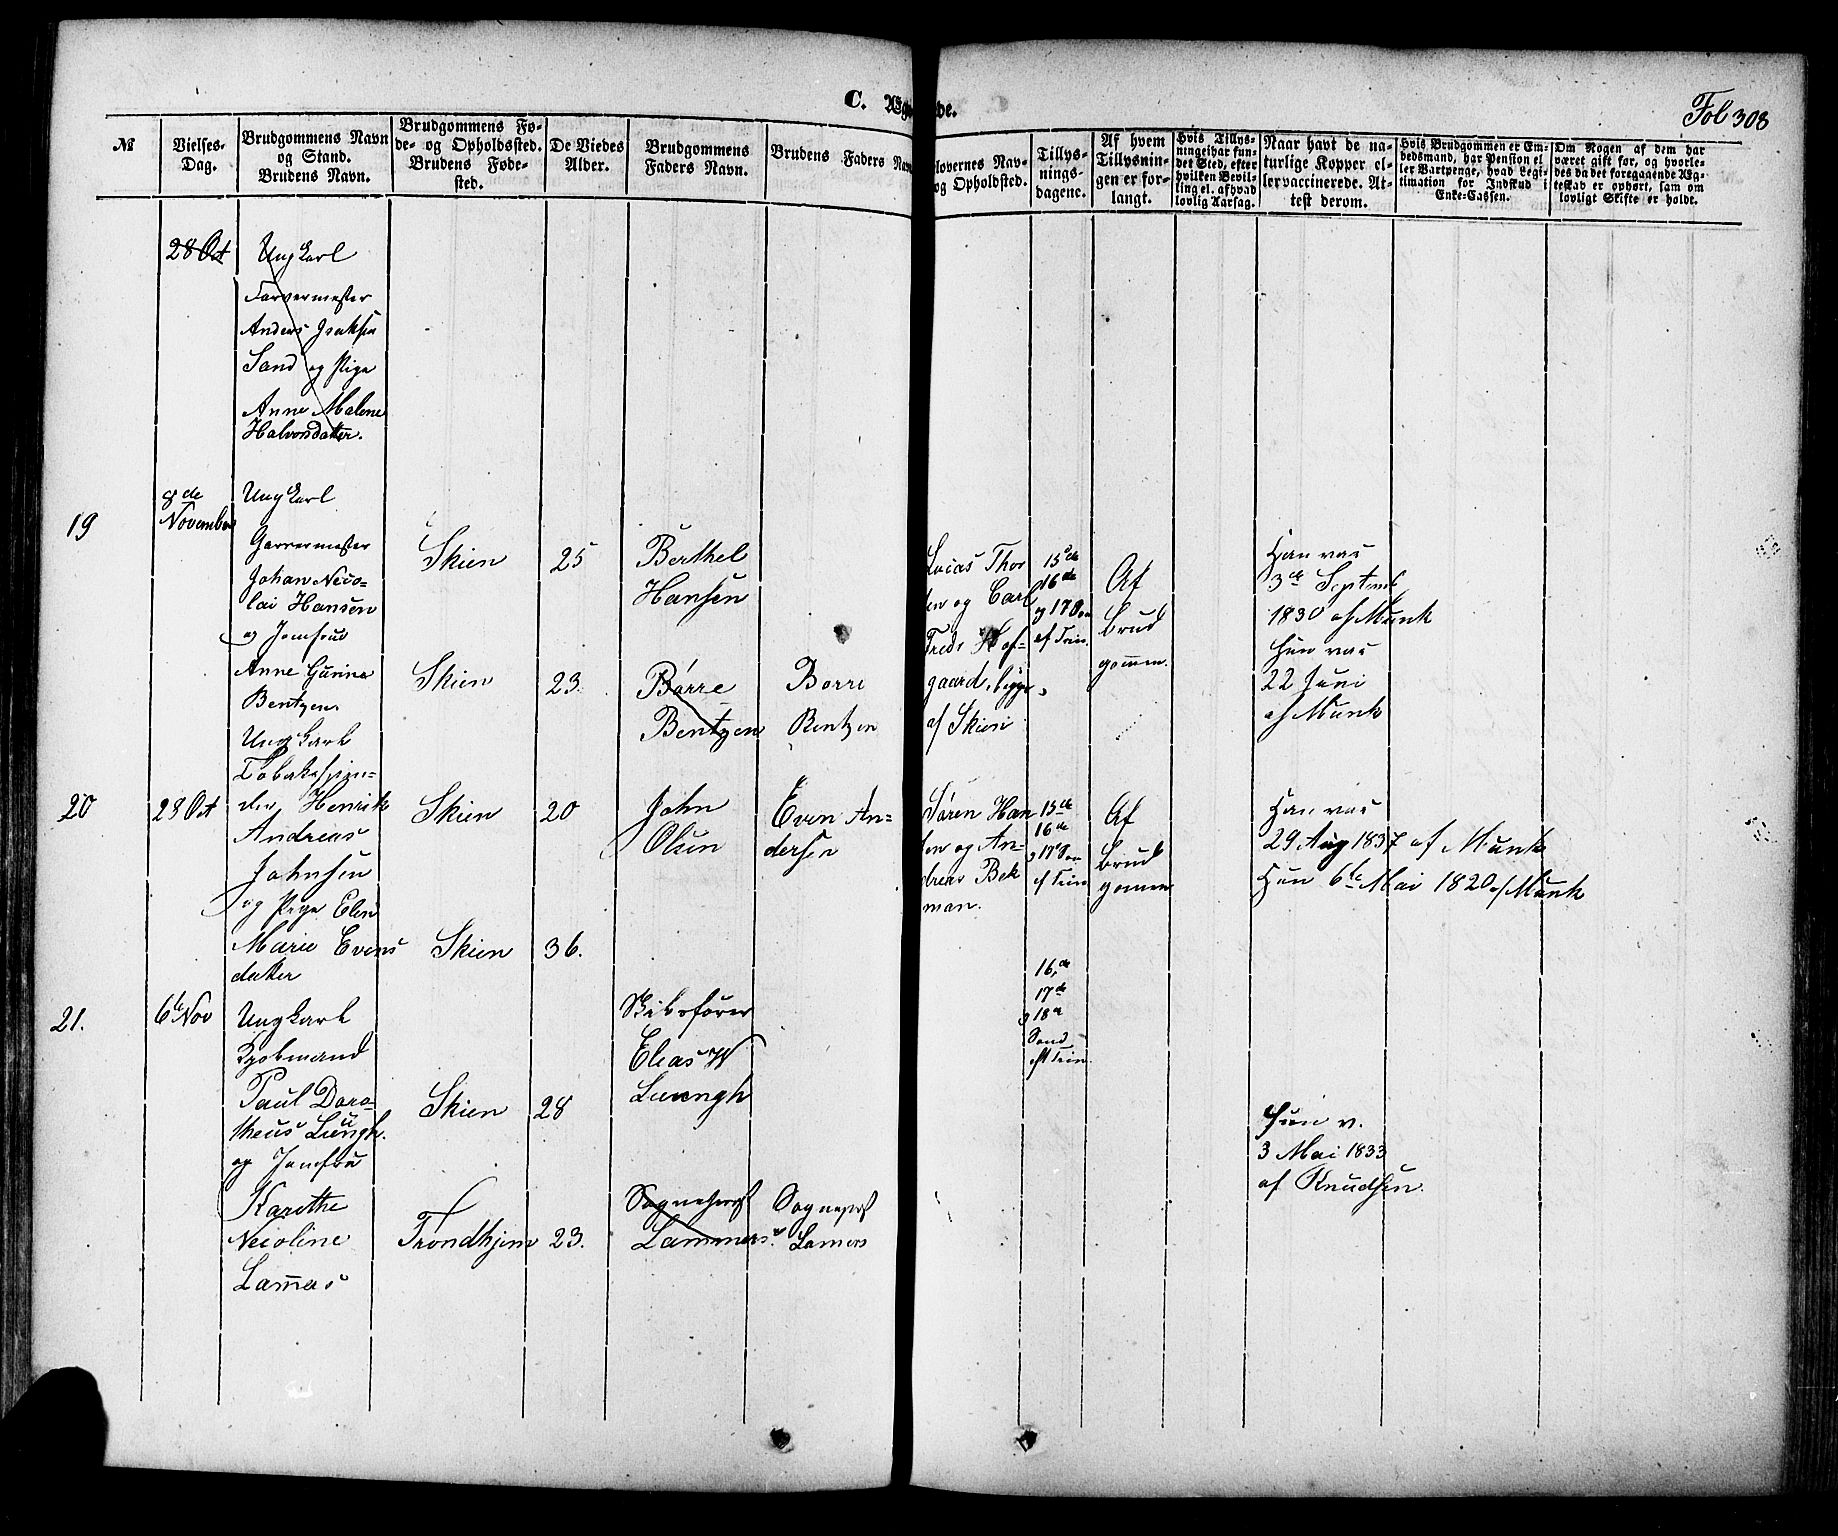 C. Ægte
de.
Fol 308
№
Vielses-
Dag.
Brudgommens Navn
og Stand.
Brudens Navn.
Brudgommens Fø-
de- og Opholdssted.
Brudens Føde-
sted.
De Viedes
Alder.
Brudgommens
Faders Navn.
Brudens Faders Nav
lovernes Nav-
og Opholdsted.
Tillys-
nings-
dagene.
Af hvem
Tillysnin-
gen er for-
langt.
Hvis Tillys-
ningei har fun-
det Sted, efter
hvilken Bevil-
ling el. af hvad
lovlig Aarsag.
Naar havt de na-
turlige Kopper el-
ler vaccinerede. At-
test derom.
Hvis Brudgommen er Em-
bedsmand, har Pension el
ler Vartpenge, hvad Legi-
timation for Indskud i
Enke-Cassen.
Om Nogen af dem har
været gift før, og hvorle-
des da det foregaaende Æg-
teskab er ophørt, sam om
lovligt Skifte er holdt.
28 Oct
Ungkarl
Farvermester
Anders Isaksen
Sand og Pige
Anne Malene
Halvorsdatter.
19
8de
November
Ungkarl
Garvermester
Johan Nico-
lai Hansen
og Jomfrue
Anne Gurine
Bentzen
Skien
25
Berthel
Hansen
Skien
23.
Børre
Bentzen
Børre
Bentzen
Lucas Thor
sen og Carl
Fred. Hof-
gaard, begge
af Skien
15de
16de
og 17 Son
ef Trin
Af
Brud
gommen.
Han vac
3de Septemb
1830 af Munk
Hun vac
22 Juni
af Munk
20
28 Oct
Ungkarl
Tobakspin-
der Henrik
Andreas
Johnsen
og Pige Elen
Marie Evens
datter
Skien
20
John
Olsen
Even An-
dersen
Skien
36.
Søren Han
sen og An-
dreas Bek
man.
15de
16de
og 17 Son
ef Trin
Af
Brud
gommen
Han vac
29 Aug 1837 af Munk
Hun 6te Mai 1820 af Munk
21.
6te Nov
Ungkarl
Kjøbmand
Paul Doro-
theus Lüngh.
og Jomfru
Karithe
Nicoline
Lamers
Skien
28
Skibsfører
Elias W
Luungh
Trondhjem
23.
Sogneprest
Lammers.
Sogneprst
Lamers
16de
17de
og 18de
Sond
eft Trin.
Hun v.
3 Mai 1833
af Knudsen.